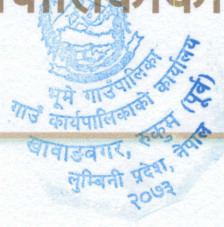 भूमे गाउँपालिका
गाउँ कार्यपालिकाको कार्यालय
खावाङवगर, रुकुम (पूर्व)
लुम्बिनी प्रदेश, नेपाल
२०७३